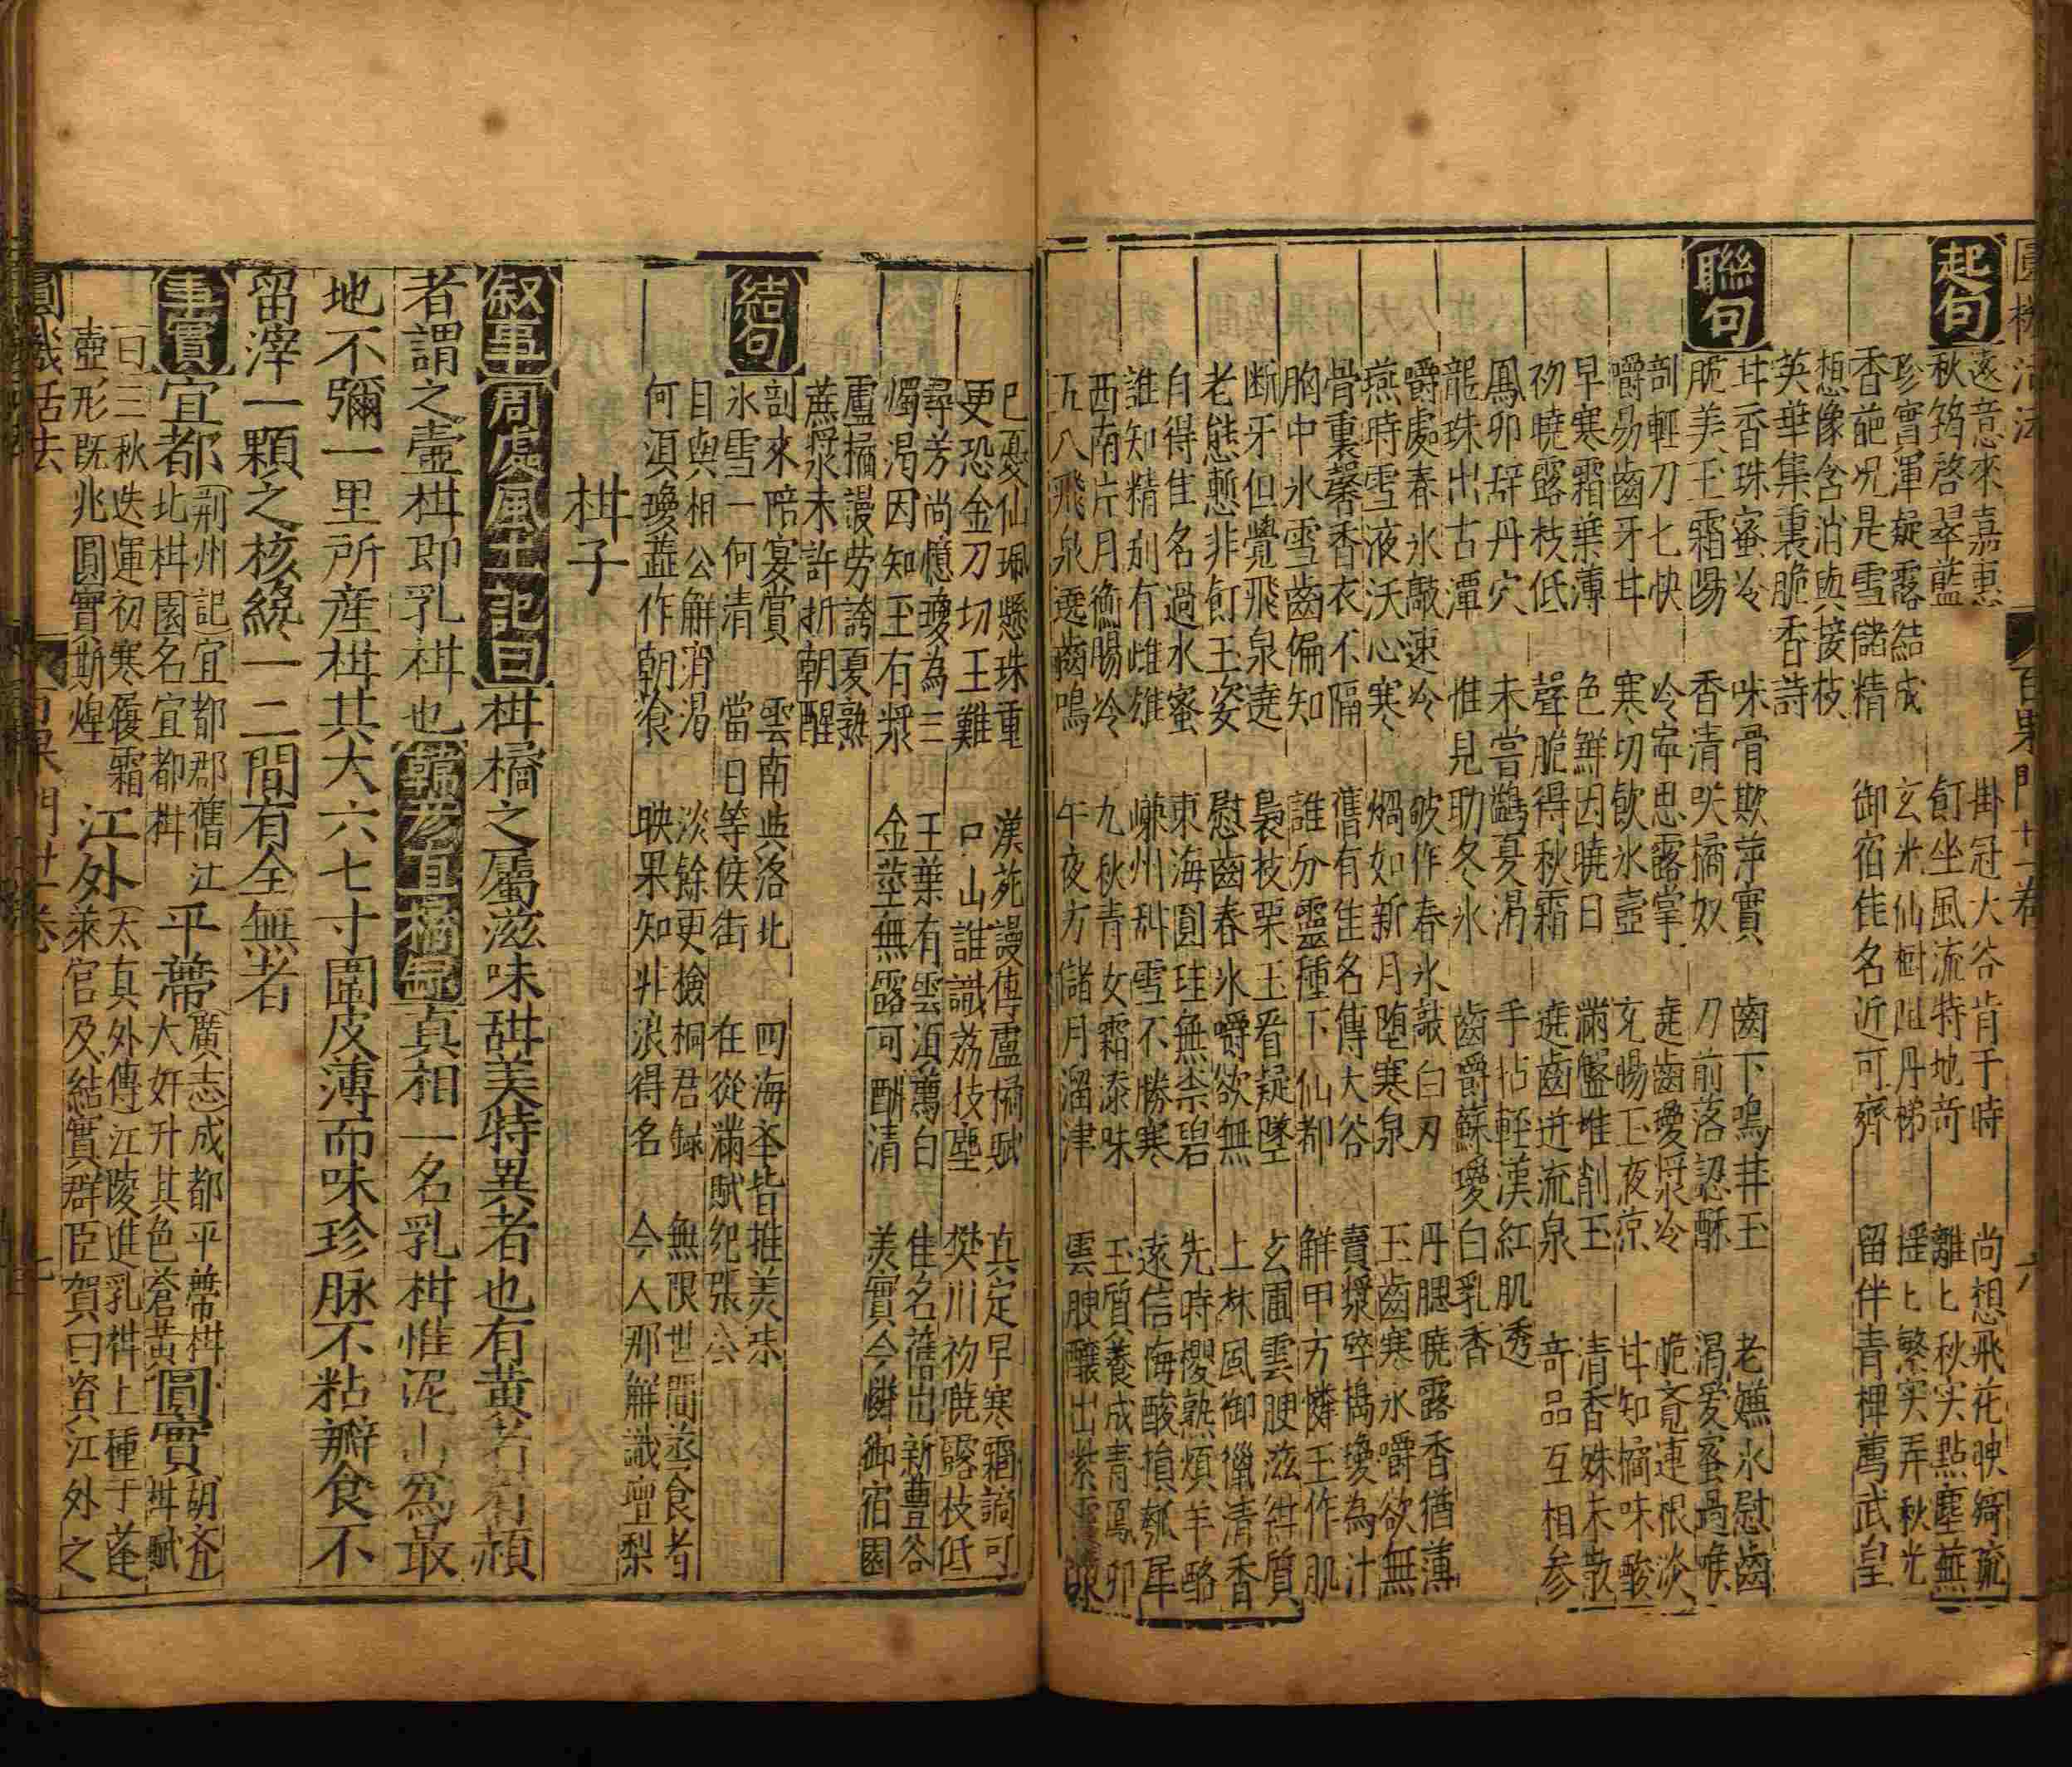 圓機活法
百果門廿一卷
六
起句
遠意來嘉惠 掛冠大谷肯干時 尚想飛花映綺疏
秋筠啓翠藍 飣坐風流特地奇 離匕秋实點塵蕪
珍實渾凝露結成 玄光仙樹阻丹梯 揺匕繁实弄秋光
香葩况是雪儲精 御宿佳名近可齊 留伴青榠萬武皇
想像含消與接枝
英華集裏脆香詩
聯句
甘香珠蜜冷 味骨欺萍實 齒下鳴非玉 老嫌氷慰齒
脆美玉霜陽 香清咲橘奴 刀前落認酥 渴爱蜜過喉
剖輕刀匕快 冷寧思露掌 遶齒愛漿冷 脆竟連根淡
嚼易齒牙甘 寒切飲氷壺 充腸玉夜凉 甘知橘味酸
早寒霜葉薄 色鮮因曉日 滿盤堆削玉 清香姝未散
初曉露枝低 聲脆得秋霜 遶齒迸流泉 奇品互相参
鳳卵辞丹穴 未嘗鷀憂渇 手拈軽漢紅肌透
龍珠出古潭 惟見助冬氷 齒嚼蘇瓊白乳香
嚼處春氷敲速冷 破作春氷敲白刃 丹腮曉露香猶薄
燕時雪液沃心寒 焗如新月墮寒泉 玉齒寒氷嚼欲無
骨重裏馨香衣不隔 舊有佳名傳大谷 賣漿碎搗瓊為汁
胸中氷雪齒偏知 誰分靈種下仙都 解甲方憐玉作肌
断牙但覺飛泉遶 裊枝栗玉看凝墜 玄圃雲腴滋絓質
老態慙非飣玉姿 慰齒春氷嚼欲無 上林風御㒤清香
自得隹名過水蜜 東海圓珪無柰碧 先時櫻熟煩羊酪
誰知精别有雌雄 蒹州斜雪不勝寒 遠信梅酸損瓠犀
西南片月衝腸冷 九秋青女霜添味 玉質養成青鳳卵
五八飛泉遶齒鳴 午夜方儲月溜津 雲腴釀出紫雲
已憂仙珮懸珠重 漢苑謾傳盧橘賦 真定早寒霜謫可
更恐金刀切玉難 口山誰識荔枝塵 樊川初曉露枝低
尋芳尚憶瓊為三 玉葉有雲湏萬白 隹名舊出新豊谷
燭渇因知玉有漿 金莖無露可酬清 美實今憐御宿園
盧橘謾勞誇夏熟
蔗漿未許折朝酲
結句
剖來陪宴賞 雲南與洛北 四海本皆推美味
氷雪一何清 當日等侯街 在從滿賦紀張公
目與相公解消渇 淡餘更撿桐君録 無限世間蒸食者
何湏瓊蘂作朝飡 映果知非浪得名 今人那解識壇梨
柑子
叙事 周處風土記曰 柑橘之屬滋味甜美特異者也有黄者有頳
者謂之壷柑即乳柑也 韓彦直橘録 真柑一名乳柑惟泥山為最
地不彌一里所産柑其大六七寸圍皮薄而味珍脉不粘瓣食不
留滓一顆之核纔一二間有全無者
事實 宜都 荊州記宜都郡舊江北柑園名宜都柑 平蔕 廣志成都平蔕柑大如升其色蒼黄 圓實 胡斉柑賦
曰三秋迭運初寒履霜壺形既兆圓實斯煌 江外 太真外傳江陵進乳柑上種于蓬萊官及結實群臣賀曰資江外之
圓機活法
百果門廿一卷
七